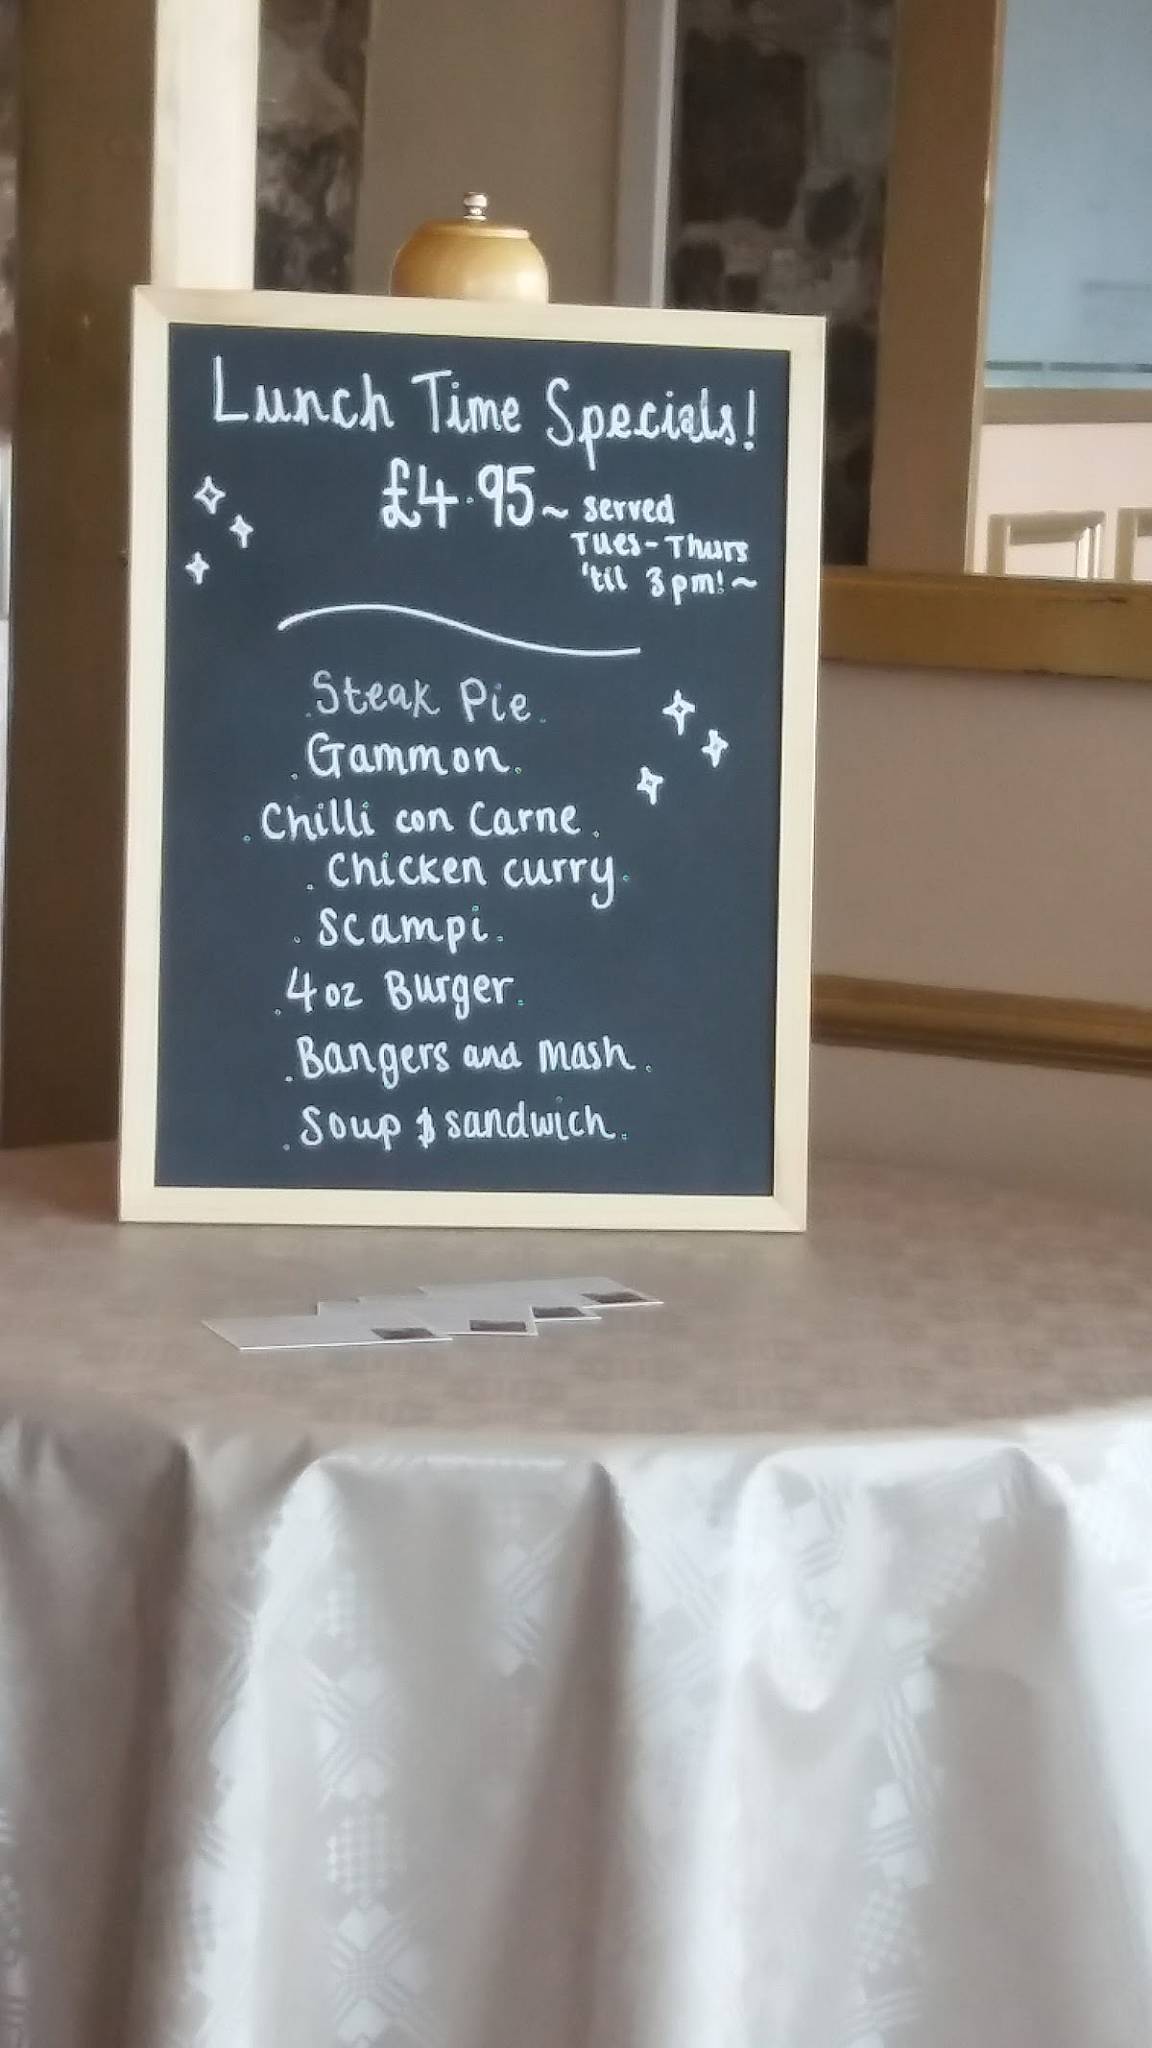 Lunch Time Specials!
£4.95 ~ served
Tues - Thurs
'til 3pm! ~
. Steak Pie .
. Gammon .
. Chilli con Carne .
. Chicken curry .
. Scampi .
. 4oz Burger .
. Bangers and Mash .
. Soup & sandwich .